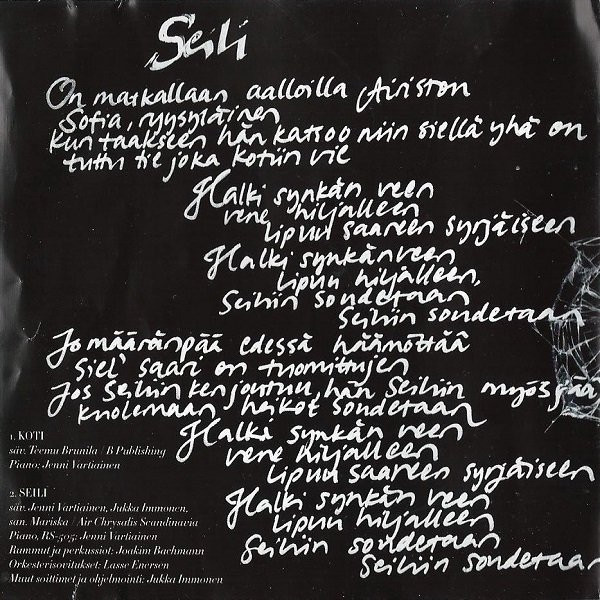 Seili
On matkallaan aalloilla Airiston
Sofia, ryysyläinen
Kun taakseen hän katsoo niin siellä yhä on
tuttu tie joka kotiin vie
Halki synkän veen
vene hiljalleen
lipuu saareen syrjäiseen
Halki synkän veen
lipuu hiljalleen,
Seiliin soudetaan
Seiliin soudetaan
Jo määränpää edessä häämöttää
siel' saari on tuomittujen
Jos Seiliin ken joutuu, hän Seiliin myös jää
kuolemaan heikot soudetaan
Halki synkän veen
vene hiljalleen
lipuu saareen syrjäiseen
Halki synkän veen
lipuu hiljalleen
Seiliin soudetaan
Seiliin soudetaan
1. KOTI
säv. Teemu Brunila / B Publishing
Piano: Jenni Vartiainen
2. SEILI
säv. Jenni Vartiainen, Jukka Immonen,
san. Mariska / Air Chrysalis Scandinavia
Piano, RS-505: Jenni Vartiainen
Rummut ja perkussiot: Joakim Bachmann
Orkesterisovitukset: Lasse Enersen
Muut soittimet ja ohjelmointi: Jukka Immonen